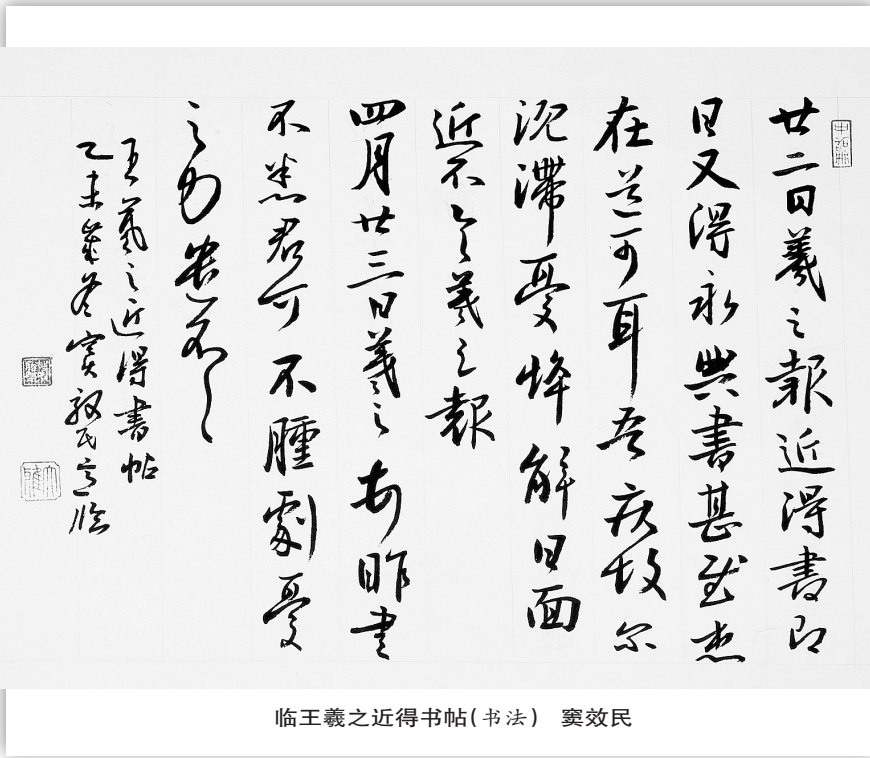 廿二日羲之報近得書即
日又得永興書甚慰想
在道可耳吾疾故爾
沉滯憂悴解日面
近不具羲之報
四月廿三日羲之昨書
不悉君可不腫劇憂
之力遣不
王羲之近得書帖
乙未歲冬竇效民意臨
临王羲之近得书帖(书法) 窦效民